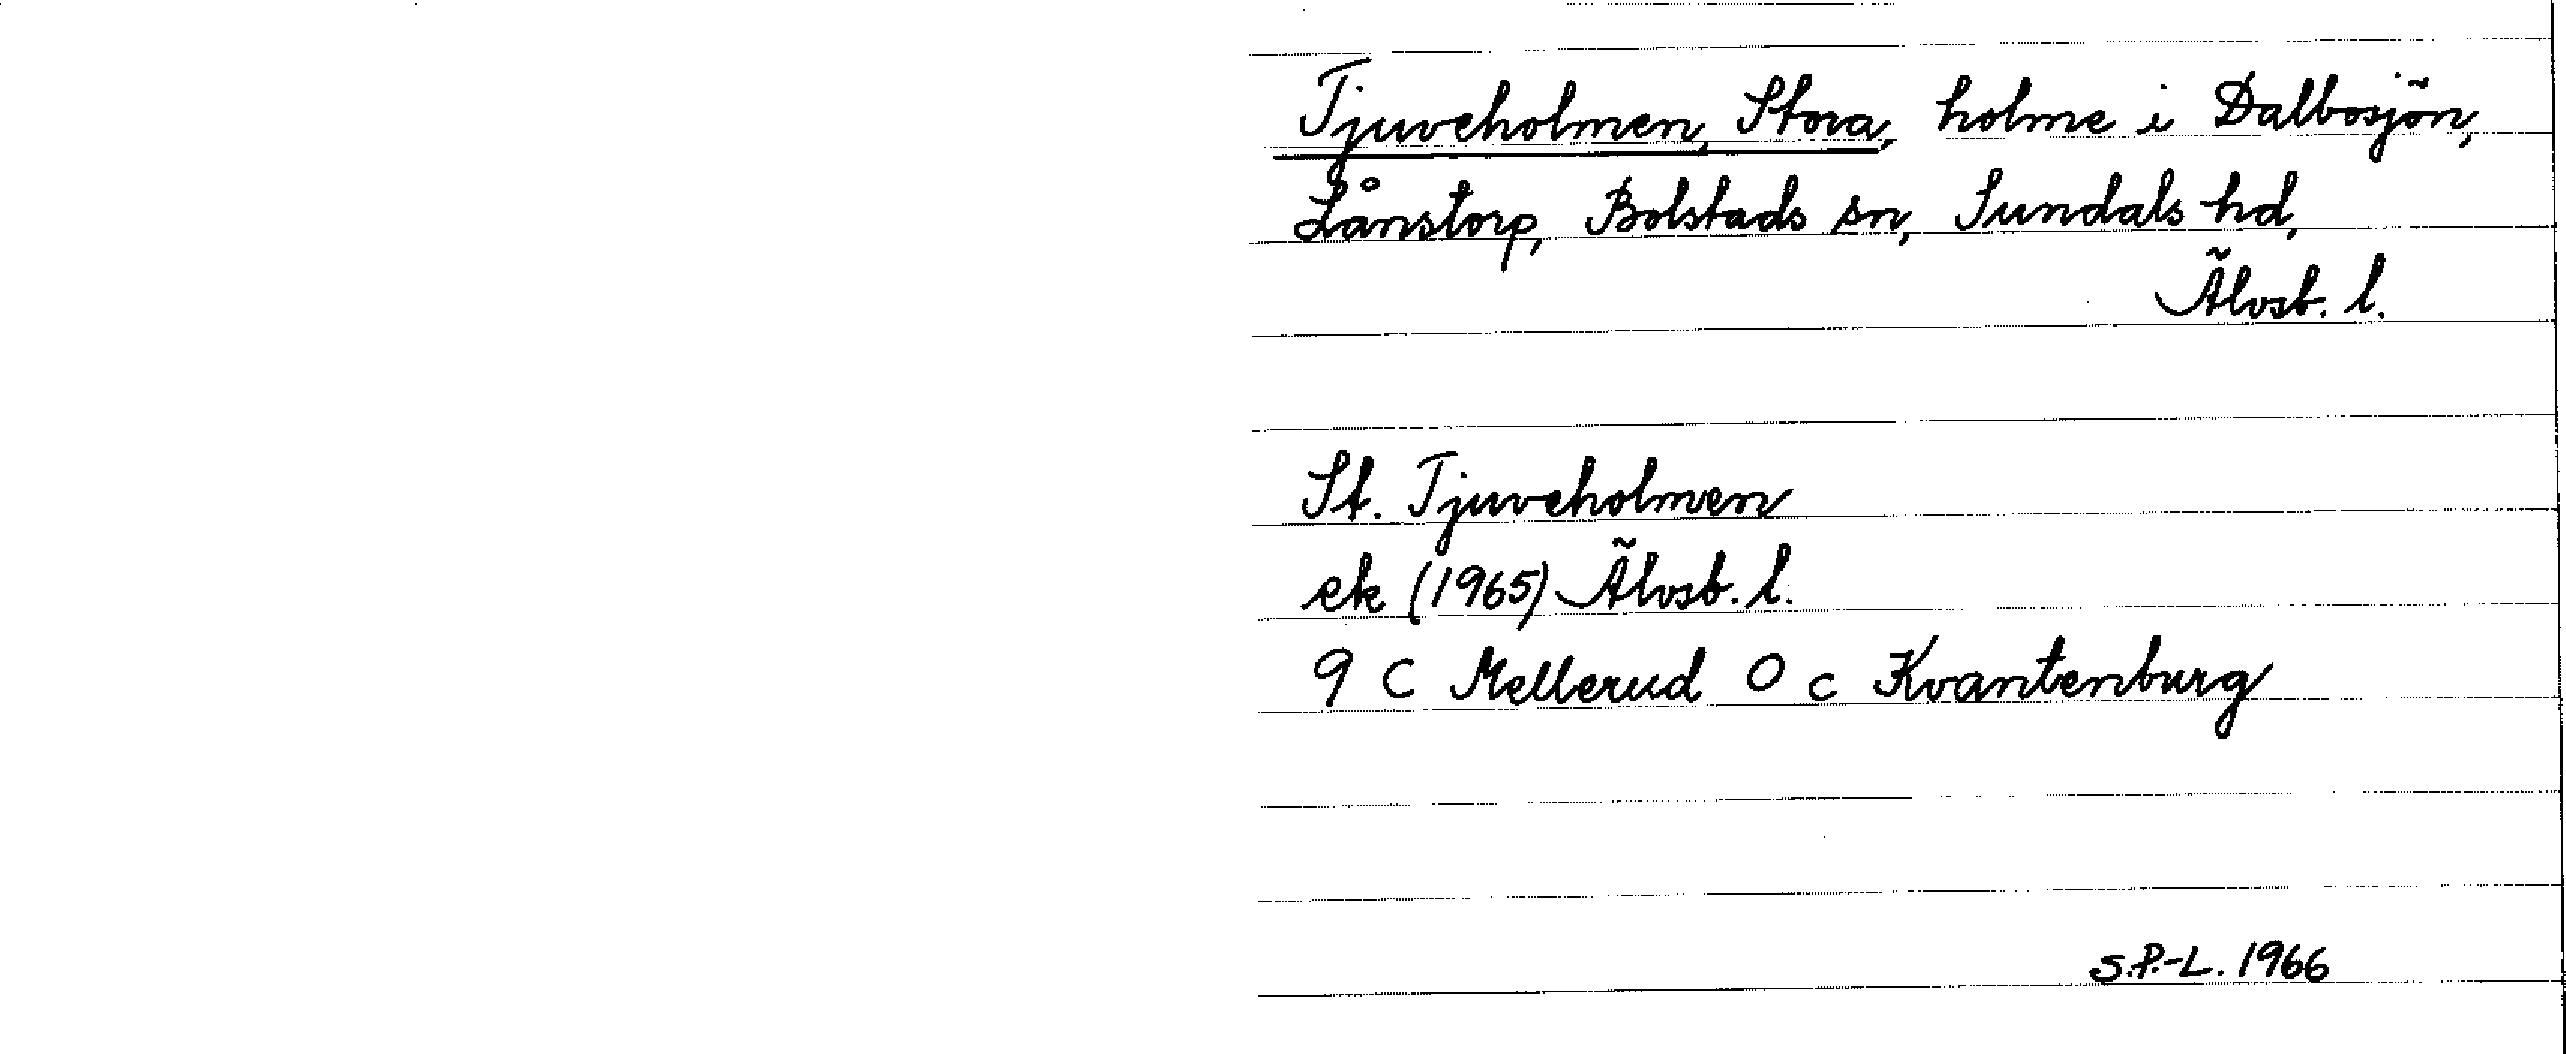 Tjuveholmen, Stora, holme i Dalbosjön,
Lånstorp, Bolstads sn, Sundals hd,
Älvsb. l.
St. Tjuveholmen
ek (1965) Älvsb. l.
9 C Mellerud O c Kvantenburg
S.P.-L. 1966